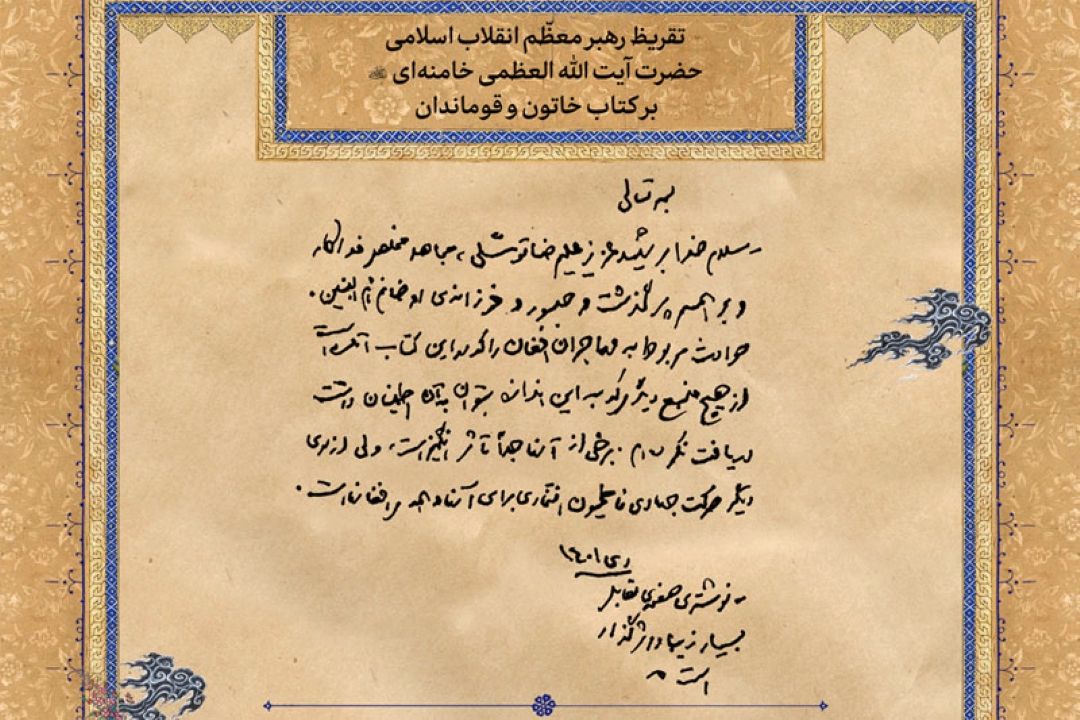 تقریظ رهبر معظّم انقلاب اسلامی
حضرت آیت الله العظمی خامنه‌ای
بر کتاب خاتون و قوماندان
بسمه تعالی
سلام خدا بر شهید عزیز علیرضا توسّلی، مجاهد مخلص فداکار
و بر همسر پرگذشت و صبور و فرزانه‌ی او خانم ام‌البنین.
حوادث مربوط به مهاجران افغان را که در این کتاب آمده است
از هیچ منبع دیگری که به این اندازه بتوان به آن اطمینان داشت
دریافت نکرده‌ام. برخی از آنها جداً تأثرانگیز است، ولی از سوی
دیگر حرکت جهادی فاطمیون افتخاری برای آنها و همه افغانها است.
دی ۱۴۰۱
- نوشته‌ی صفحه‌ی مقابل
بسیار زیبا و اثرگذار
است